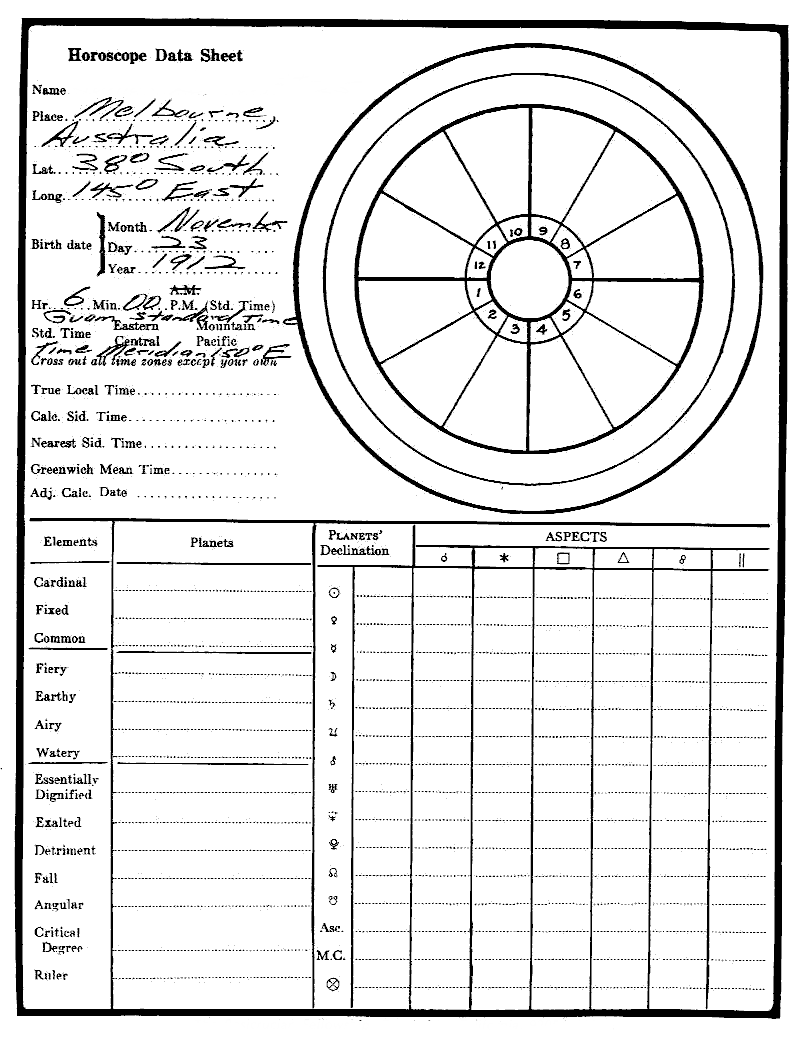 Horoscope Data Sheet
Name
Place. Melbourne,
Australia
Lat. 38° South
Long. 145° East
Birth date
Month. November
Day 23
Year 1912
A.M.
Hr. 6 Min. 00 P.M. (Std. Time)
Guam Standard Time
Std. Time Eastern Mountain
Central Pacific
Time Meridian 150° E
Cross out all time zones except your own
True Local Time
Calc. Sid. Time
Nearest Sid. Time
Greenwich Mean Time
Adj. Calc. Date
10 9
11 8
12 7
1 6
2 5
3 4
Elements Planets PLANETS' Declination ASPECTS
☌ ⚹ □ △ ☍ ||
Cardinal
Fixed
Common
Fiery
Earthy
Airy
Watery
Essentially
Dignified
Exalted
Detriment
Fall
Angular
Critical
Degree
Ruler
☉
♀
☿
☽
♄
♃
♂
♅
♆
♇
☊
☋
Asc.
M.C.
⊗